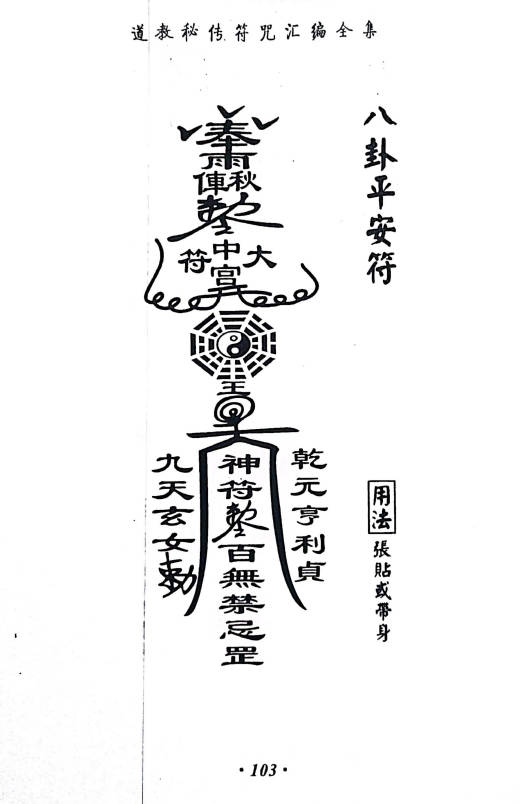 道教秘传符咒汇编全集
八卦平安符
用法
張貼或帶身
奉
雨
俥 秋
敕
符 中宫 大
王
乾元亨利貞
神符敕百無禁忌罡
九天玄女勅
·103·